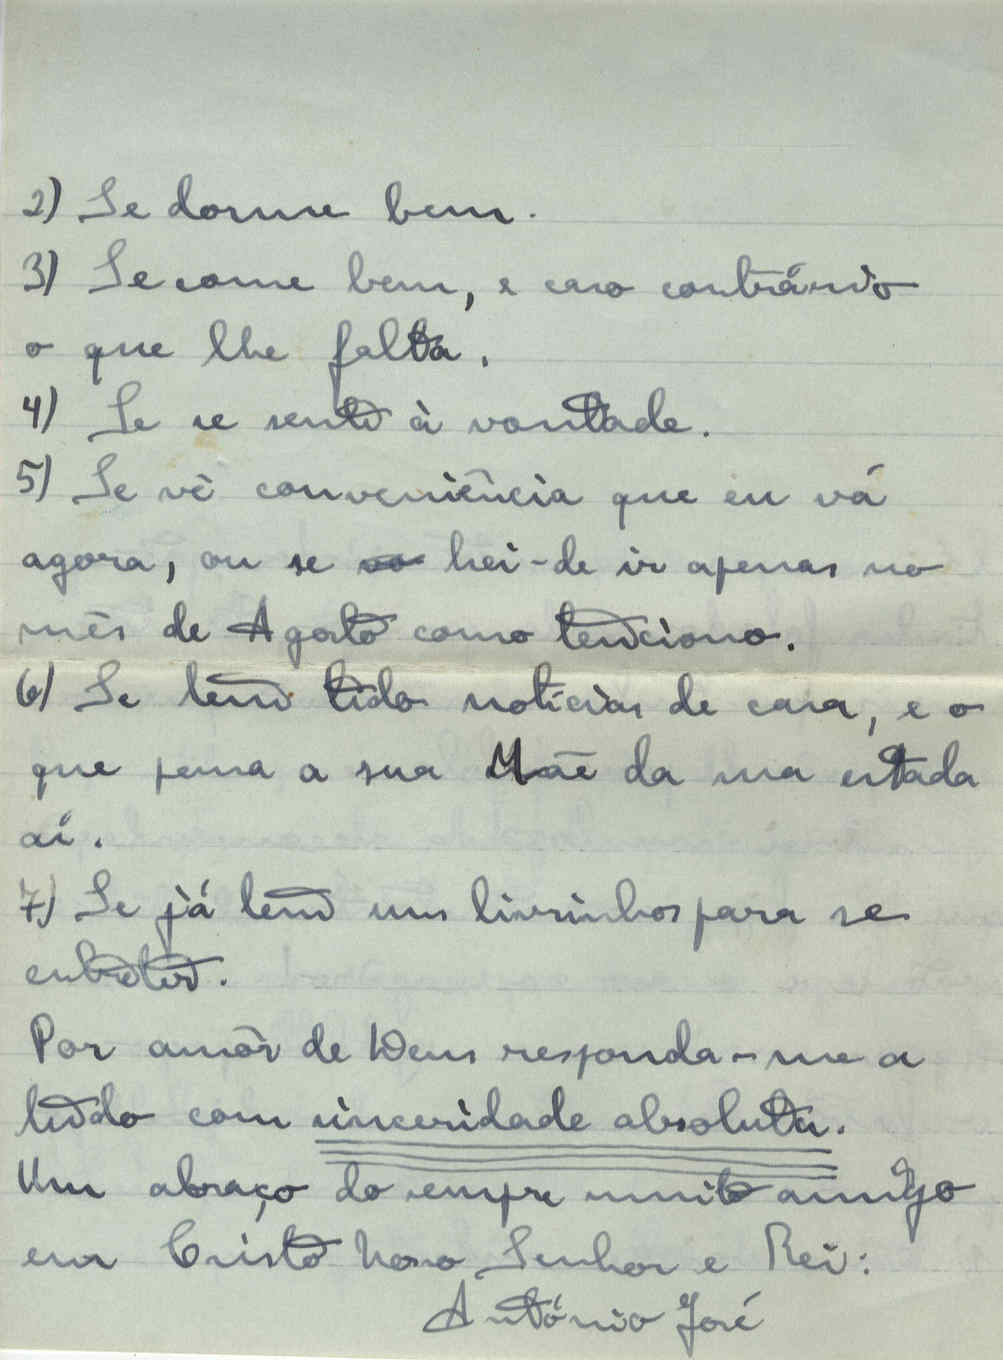 2) Se dorme bem.
3) Se come bem, e caso contrário
o que lhe falta.
4) Se se sente à vontade.
5) Se vê conveniência que eu vá
agora, ou se hei-de ir apenas no
mês de Agosto como tenciono.
6) Se tem tido notícias de casa, e o
que pensa a sua Mãe da sua estada
aí.
7) Se já tem uns livrinhos para se
entreter.
Por amôr de Deus responda-me a
tudo com sinceridade absoluta.
Um abraço do sempre muito amigo
em Cristo Nosso Senhor e Rei:
António José